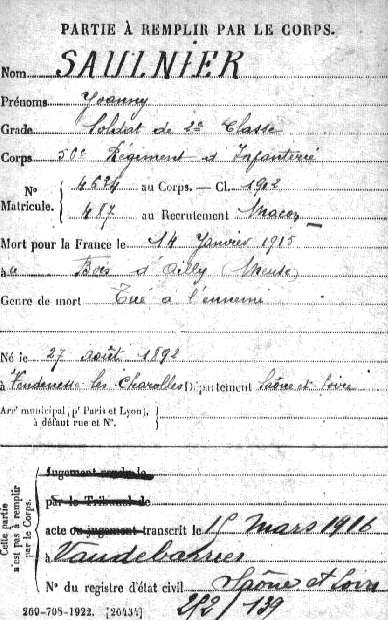 PARTIE À REMPLIR PAR LE CORPS.
Nom SAULNIER
Prénoms Joanny
Grade Soldat de 2e Classe
Corps 56e Régiment d'Infanterie
Nº Matricule. 4624 au Corps. — Cl. 1912
487 au Recrutement Macon
Mort pour la France le 14 Janvier 1915
à Bois d'Ailly (Meuse)
Genre de mort Tué à l'ennemi
Né le 27 août 1892
à Vendenesse les Charolles Département Saône et Loire
Arrt municipal (pr Paris et Lyon),
à défaut rue et Nº.
Cette partie
n'est pas à remplir
par le Corps.
Jugement rendu le
par le Tribunal de
acte ou jugement transcrit le 15 Mars 1916
à Vaudebarrier
Saône et Loire
Nº du registre d'état civil
212/139
269-708-1922. [26434]